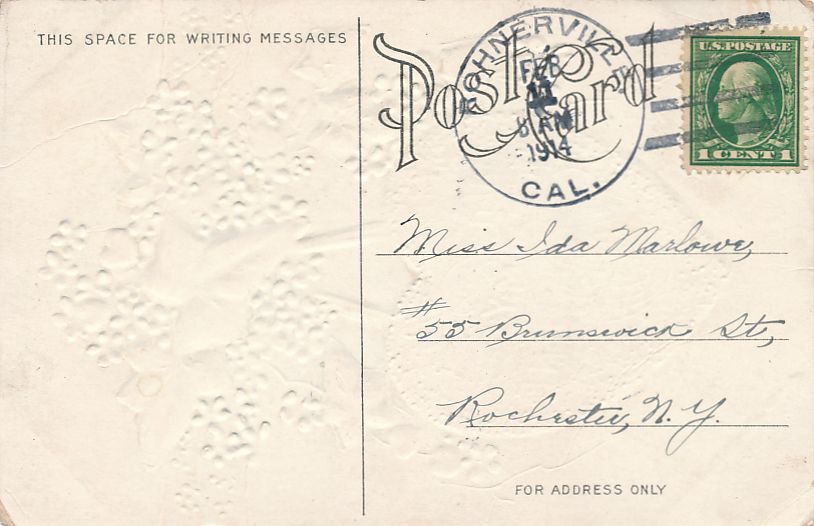 THIS SPACE FOR WRITING MESSAGES
Post Card
ROHNERVILLE
FEB
11
8 AM
1914
CAL.
U.S. POSTAGE
1 CENT 1
Miss Ida Marlowe,
#55 Brunswick St,
Rochester, N.Y.
FOR ADDRESS ONLY